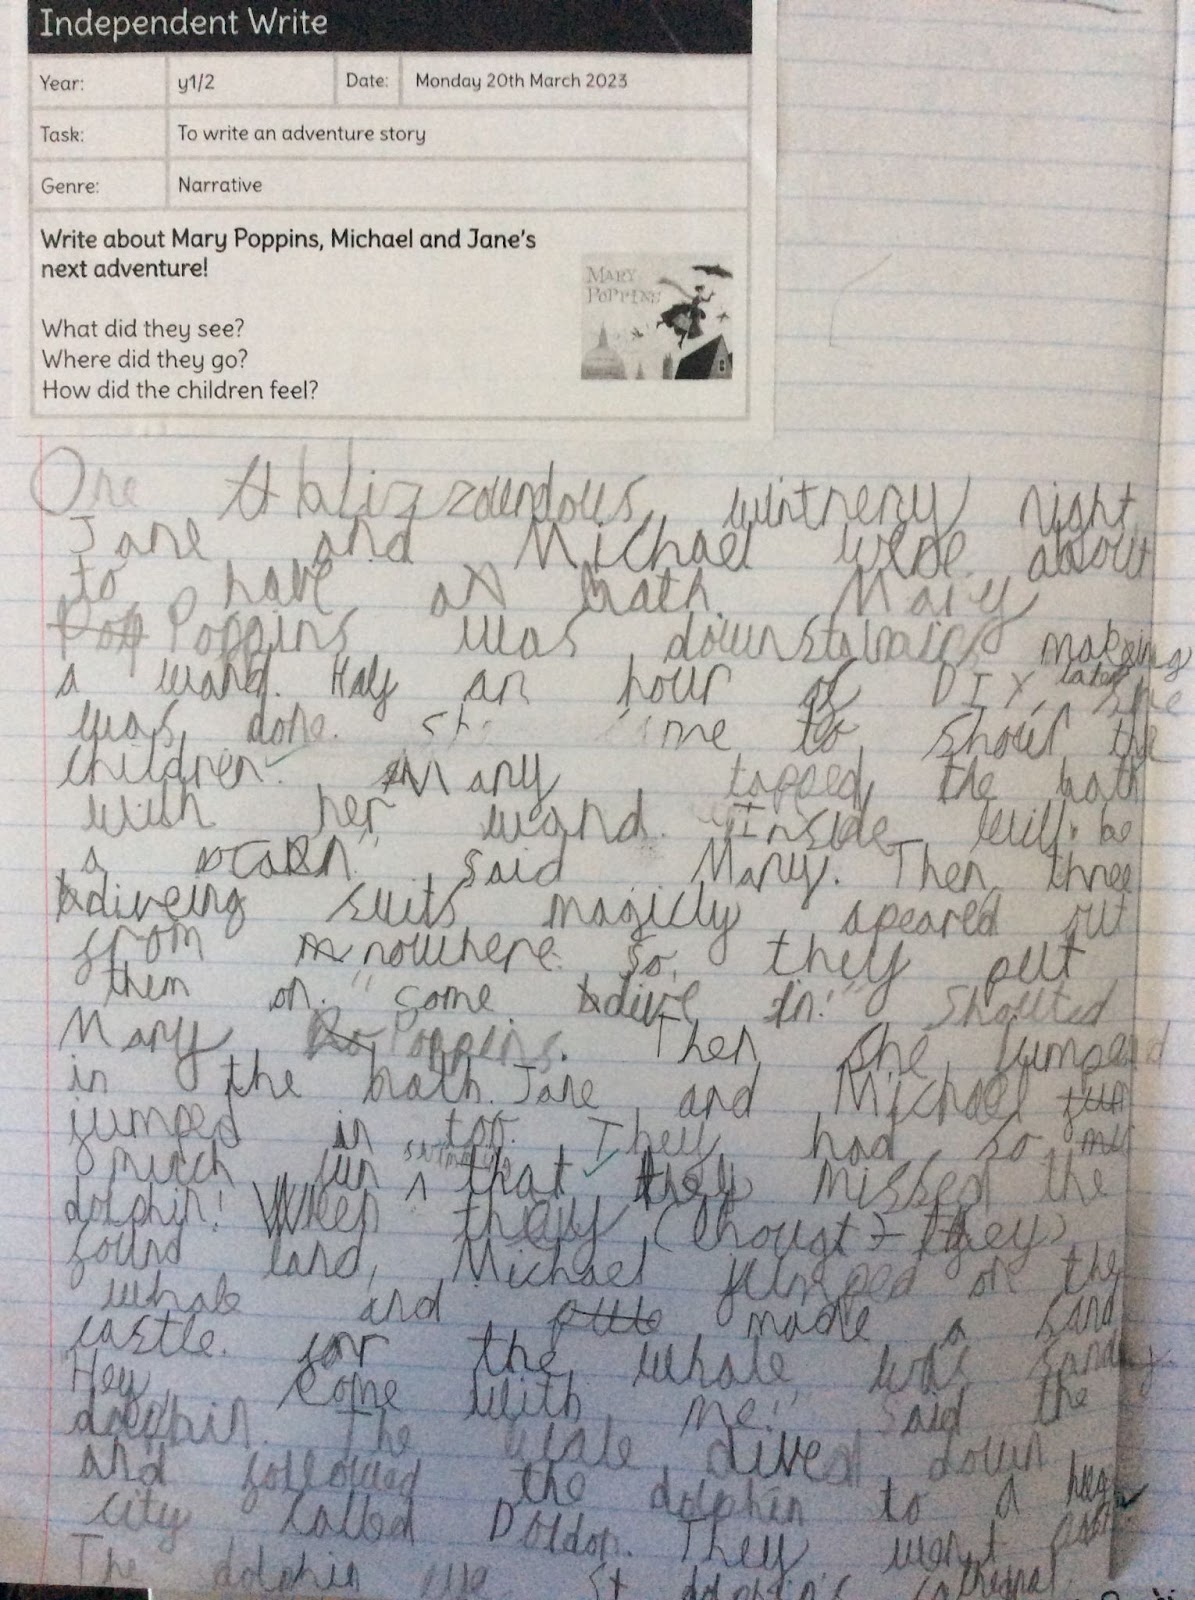 Independent Write
Year: y1/2 Date: Monday 20th March 2023
Task: To write an adventure story
Genre: Narrative
Write about Mary Poppins, Michael and Jane's
next adventure!
What did they see?
Where did they go?
How did the children feel?
MARY
POPPINS
One night
Jane and Michael were about
to have a bath. Mary
Poppins was downstairs making
a wand. Half an hour of DIY, later she
was done. to show the
children. Mary tapped the bath
with her wand. "Inside will be
a said Mary. Then three
diveing suits magicly apeared out
from nowhere. So, they put
them on. "Come dive in!" Shouted
Mary Poppins. Then she jumped
in the bath. Jane and Michael
jumped in too. They had so
much fun that they missed the
dolphin! When they (thought they)
found land, Michael jumped on the
whale and made a sand
castle. for the whale was sandy.
"Hey, come with me!" said the
dolphin. The dived down
and followed the dolphin to a
city called Doldon. They went past
The dolphin St dolphin's cathedral.